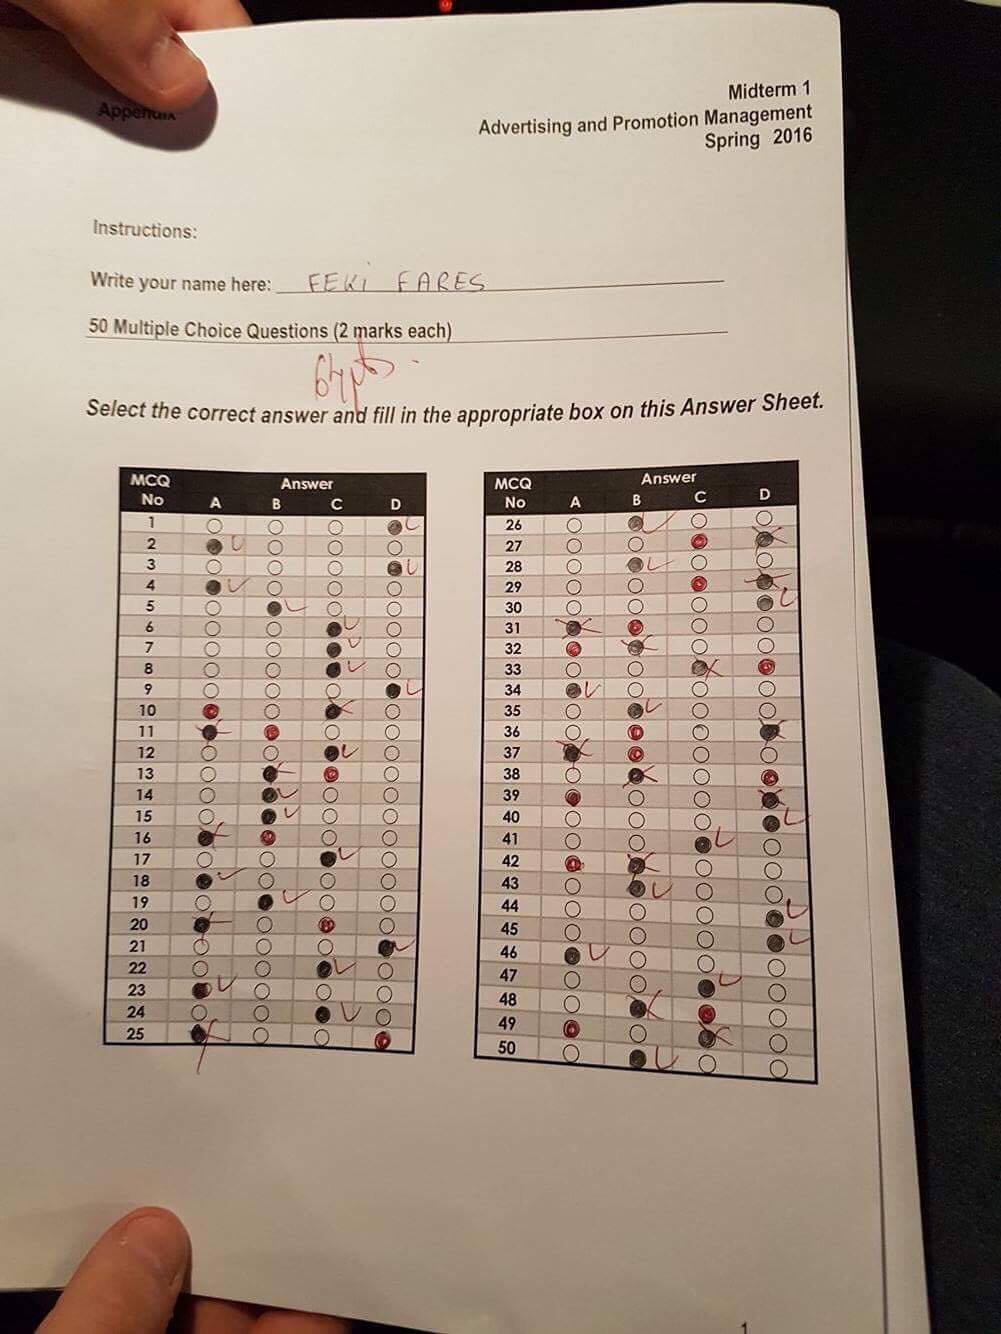 Appendix
Midterm 1
Advertising and Promotion Management
Spring 2016
Instructions:
Write your name here: FEKI FARES
50 Multiple Choice Questions (2 marks each)
64pts.
Select the correct answer and fill in the appropriate box on this Answer Sheet.
MCQ No Answer A B C D
1
2
3
4
5
6
7
8
9
10
11
12
13
14
15
16
17
18
19
20
21
22
23
24
25
MCQ No Answer A B C D
26
27
28
29
30
31
32
33
34
35
36
37
38
39
40
41
42
43
44
45
46
47
48
49
50
1